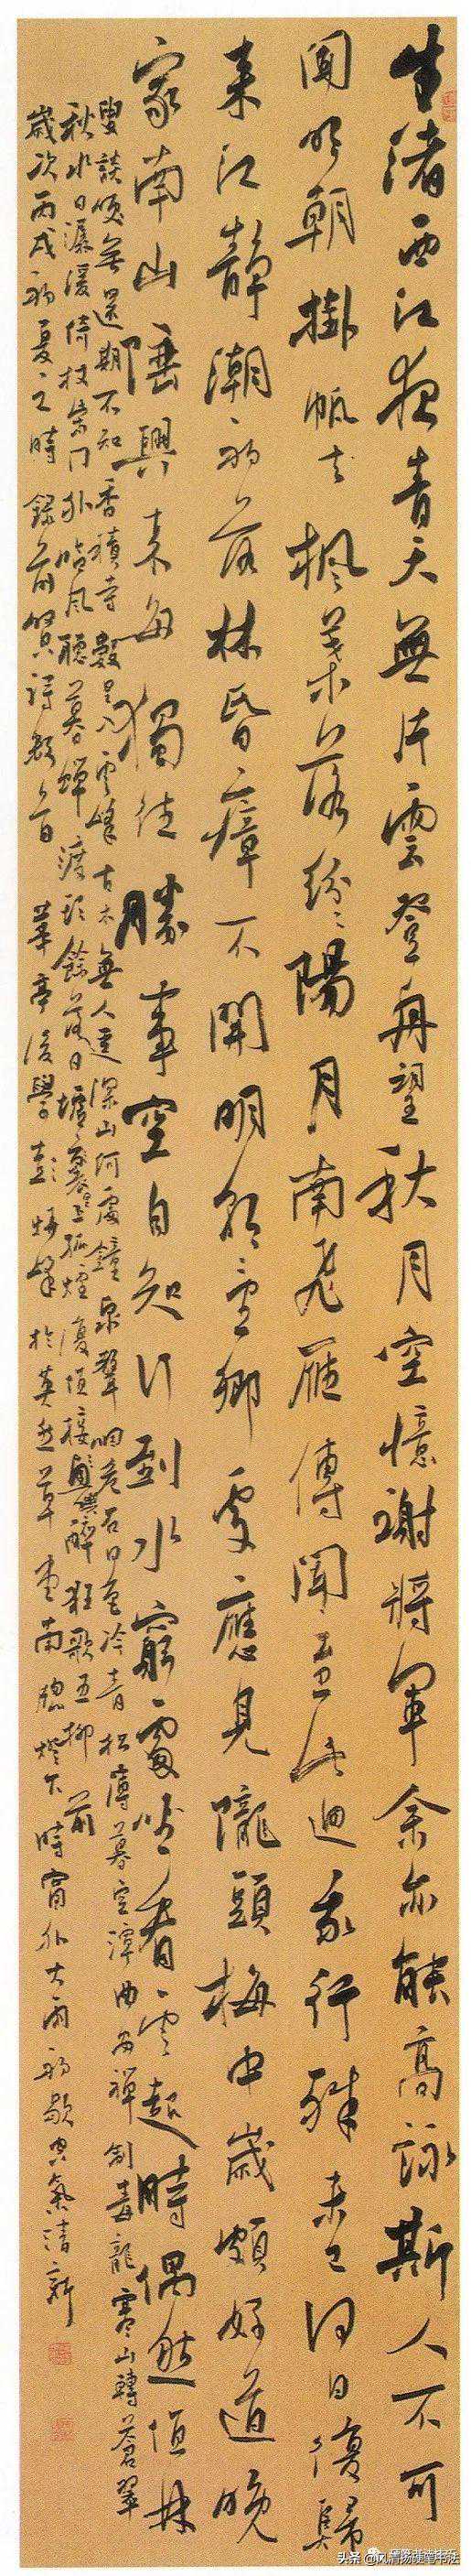 牛渚西江夜青天無片雲登舟望秋月空憶謝將軍余亦能高詠斯人不可
聞明朝掛帆去楓葉落紛々陽月南飛雁傳聞至此迴我行殊未已何日復歸
來江靜潮初落林昏瘴不開明朝望鄉處應見隴頭梅中歲頗好道晚
家南山陲興來每獨往勝事空自知行到水窮處坐看雲起時偶然值林
叟談笑無還期不知香積寺數里入雲峰古木無人逕深山何處鐘泉聲咽危石日色冷青松薄暮空潭曲安禪制毒龍寒山轉蒼翠
秋水日潺湲倚杖柴門外臨風聽暮蟬渡頭餘落日墟里上孤煙復值接輿醉狂歌五柳前
歲次丙戌初夏之時錄前賢詩數首 華亭後學彭燁峰於草堂南窗燈下時窗外大雨初歇空氣清新
头条 @风清扬硬笔书法